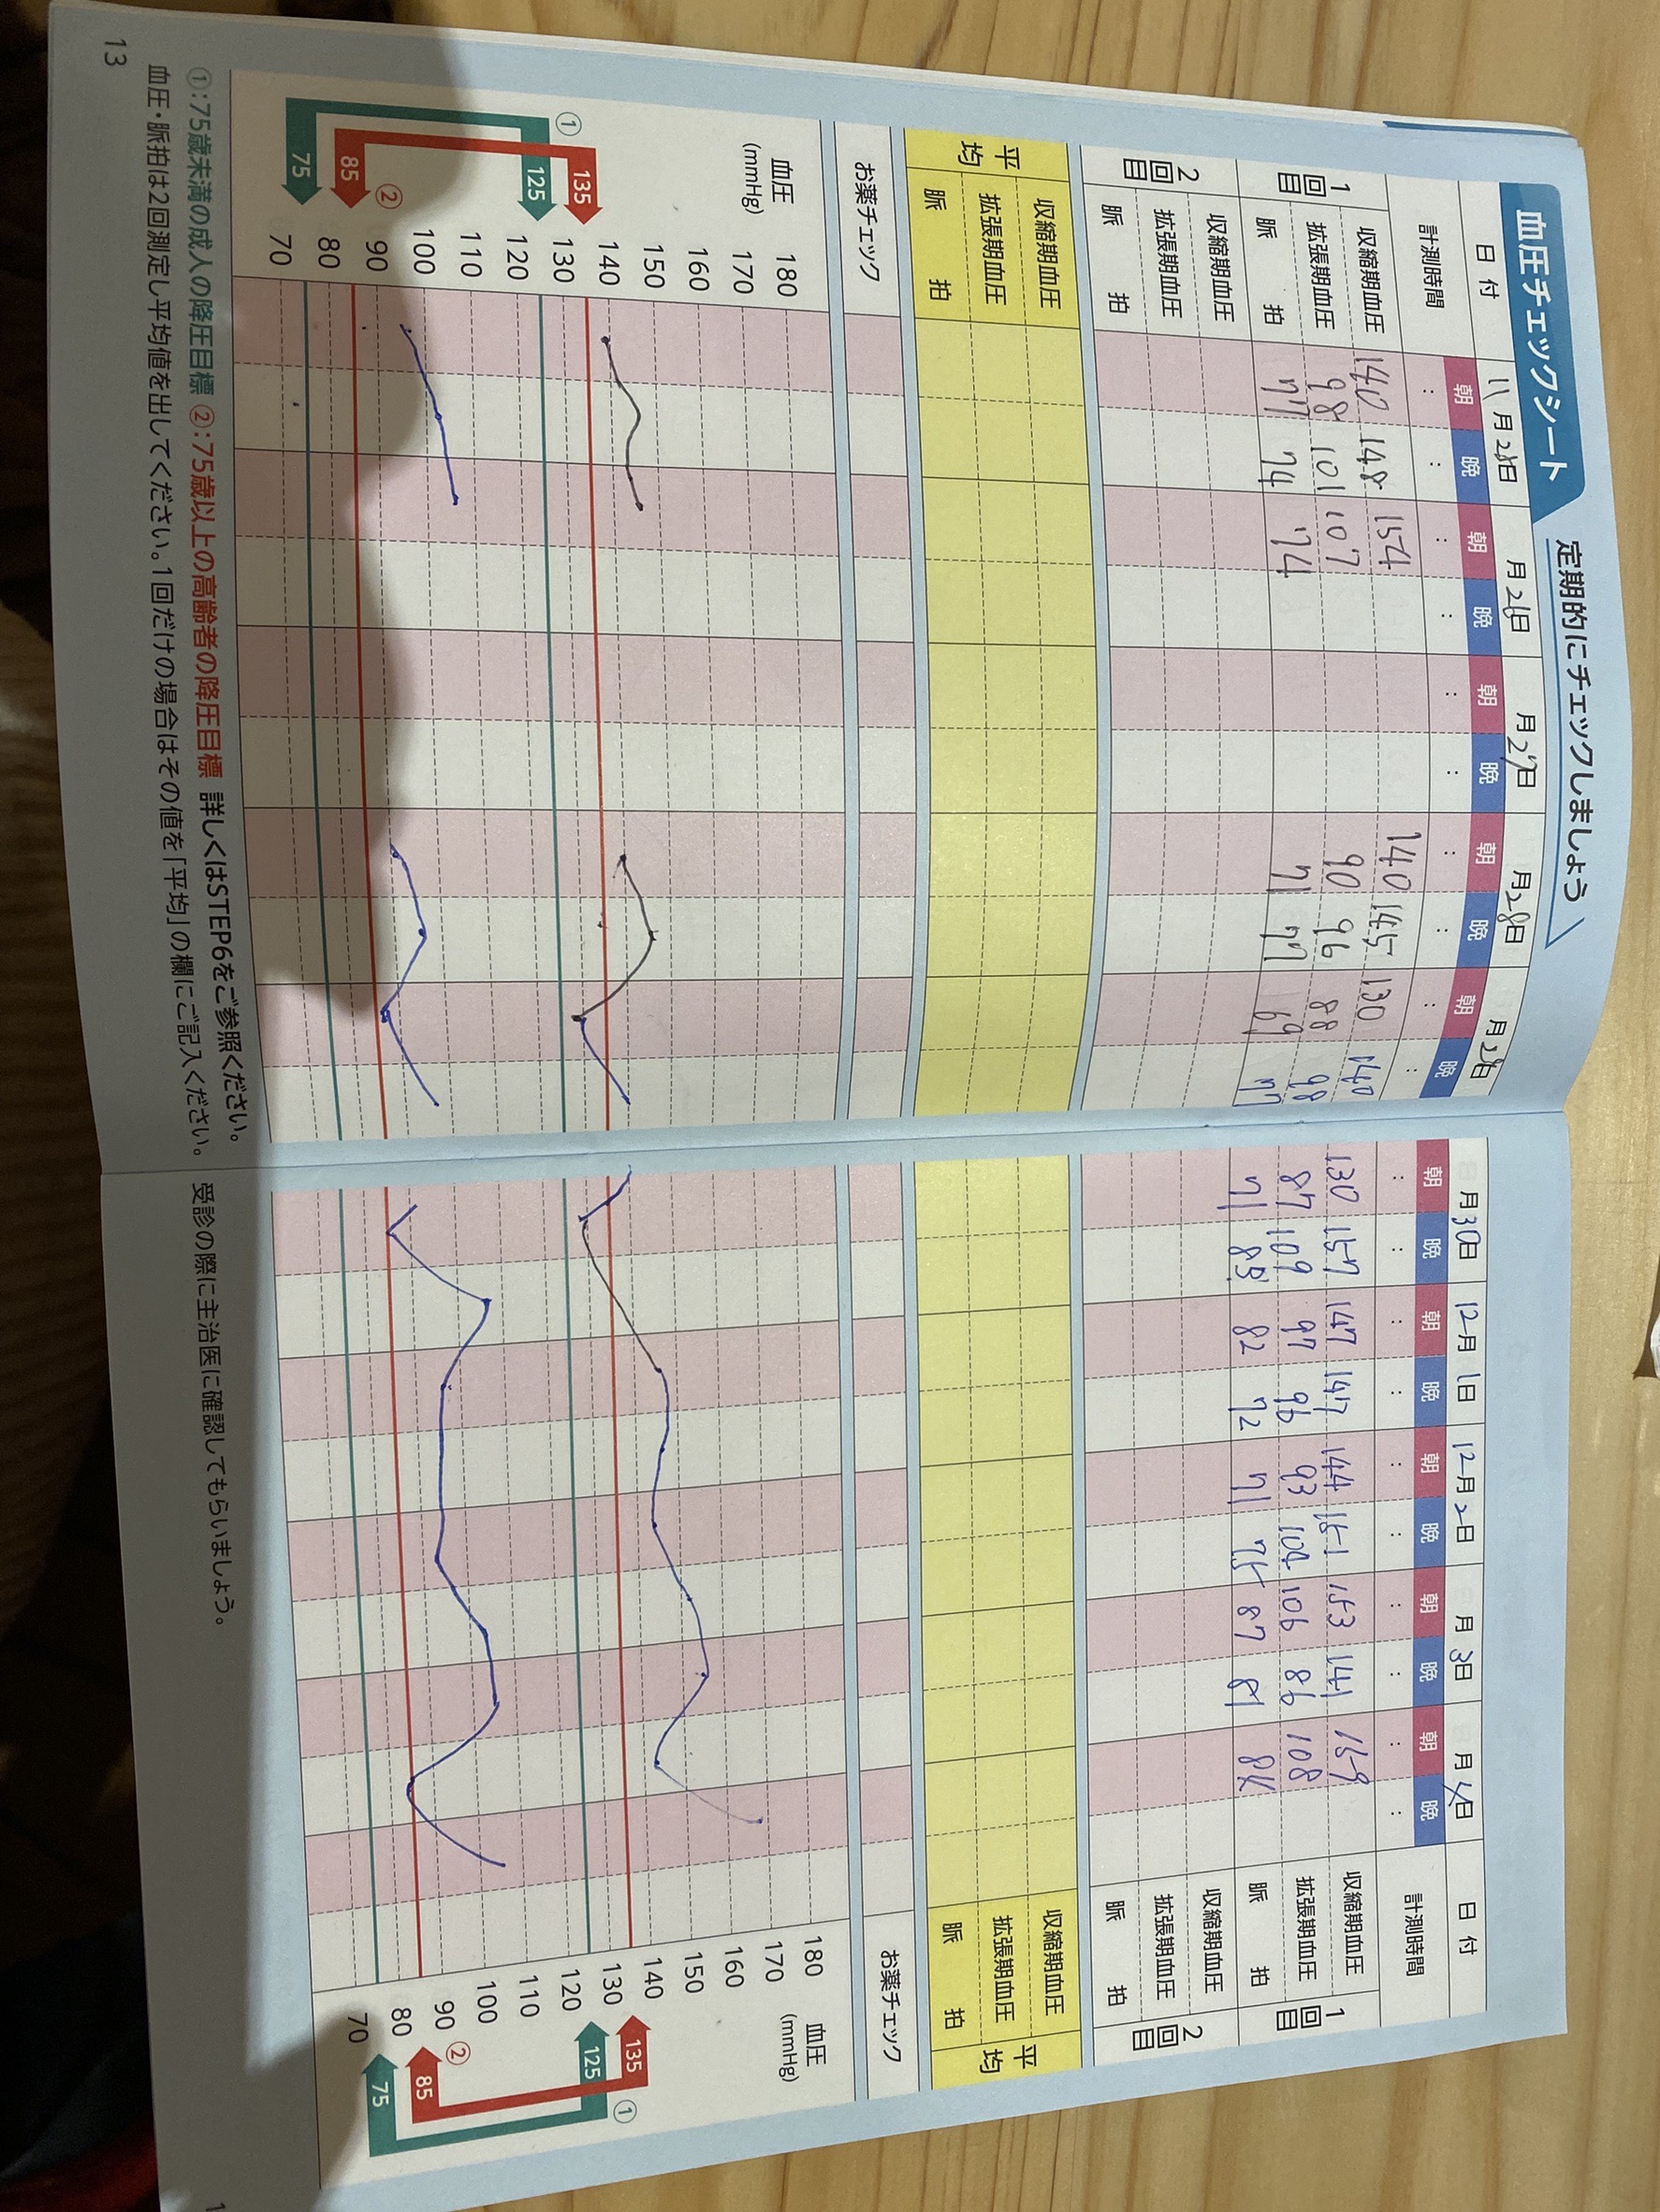 血圧チェックシート 定期的にチェックしましょう
日付 11月25日 月26日 月27日 月28日 月日 月30日 12月1日 12月2日 月3日 月4日 日付
朝 晩 朝 晩 朝 晩 朝 晩 朝 晩 朝 晩 朝 晩 朝 晩 朝 晩 朝 晩
計測時間 : : : : : : : : : : : : : : : : : : : : 計測時間
1回目 収縮期血圧 140 148 154 140 145 130 140 130 157 147 147 144 151 153 141 159 収縮期血圧 1回目
拡張期血圧 98 101 107 90 96 88 98 87 109 97 96 93 104 106 86 108 拡張期血圧
脈拍 77 74 74 71 77 69 77 71 85 82 72 71 75 87 81 84 脈拍
2回目 収縮期血圧 収縮期血圧 2回目
拡張期血圧 拡張期血圧
脈拍 脈拍
平均 収縮期血圧 収縮期血圧 平均
拡張期血圧 拡張期血圧
脈拍 脈拍
お薬チェック お薬チェック
血圧 (mmHg) 血圧 (mmHg)
180 180
170 170
160 160
150 150
① 135 140 140 135 ①
125 130 130 125
120 120
110 110
100 100
② 85 90 90 ② 85
75 80 80 75
70 70
①:75歳未満の成人の降圧目標 ②:75歳以上の高齢者の降圧目標 詳しくはSTEP6をご参照ください。
血圧・脈拍は2回測定し平均値を出してください。1回だけの場合はその値を「平均」の欄にご記入ください。 受診の際に主治医に確認してもらいましょう。
13